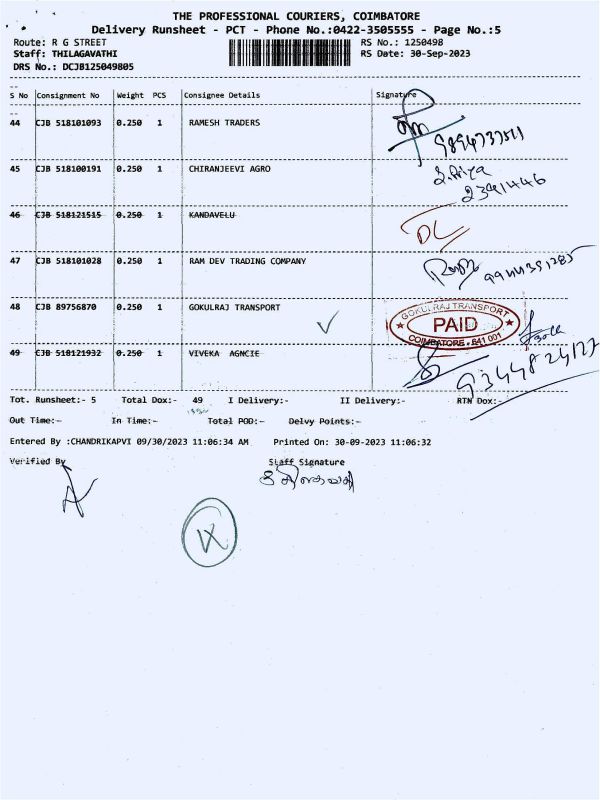 THE PROFESSIONAL COURIERS, COIMBATORE
Delivery Runsheet - PCT - Phone No.:0422-3505555 - Page No.:5
Route: R G STREET RS No.: 1250498
Staff: THILAGAVATHI RS Date: 30-Sep-2023
DRS No.: DCJB125049805
S No Consignment No Weight PCS Consignee Details Signature
44 CJB 518101093 0.250 1 RAMESH TRADERS
45 CJB 518100191 0.250 1 CHIRANJEEVI AGRO
46 CJB 518121515 0.250 1 KANDAVELU
DL
47 CJB 518101028 0.250 1 RAM DEV TRADING COMPANY
48 CJB 89756870 0.250 1 GOKULRAJ TRANSPORT
GOKULRAJ TRANSPORT
PAID
COIMBATORE - 641 001
49 CJB 518121932 0.250 1 VIVEKA AGNCIE
Tot. Runsheet:- 5 Total Dox:- 49 I Delivery:- II Delivery:- RTN Dox:-
Out Time:- In Time:- Total POD:- Delvy Points:-
Entered By :CHANDRIKAPVI 09/30/2023 11:06:34 AM Printed On: 30-09-2023 11:06:32
Verified By Staff Signature